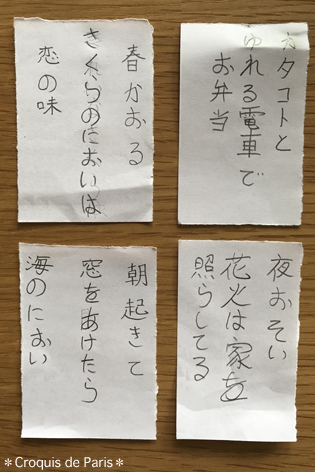 春かおる
さくらのにおいは
恋の味
カタコトと
ゆれる電車で
お弁当
朝起きて
窓をあけたら
海のにおい
夜おそい
花火は家を
照らしてる
＊Croquis de Paris＊